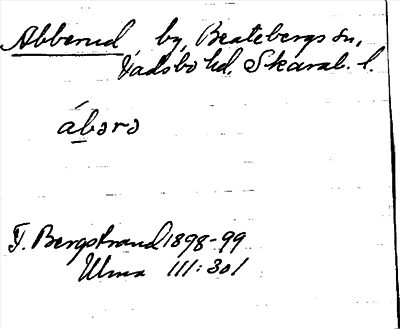 Abberud, by, Beatebergs sn,
Vadsbo hd, Skarab. l.
ábərə
T. Bergstrand 1898-99
Ulma 111:301